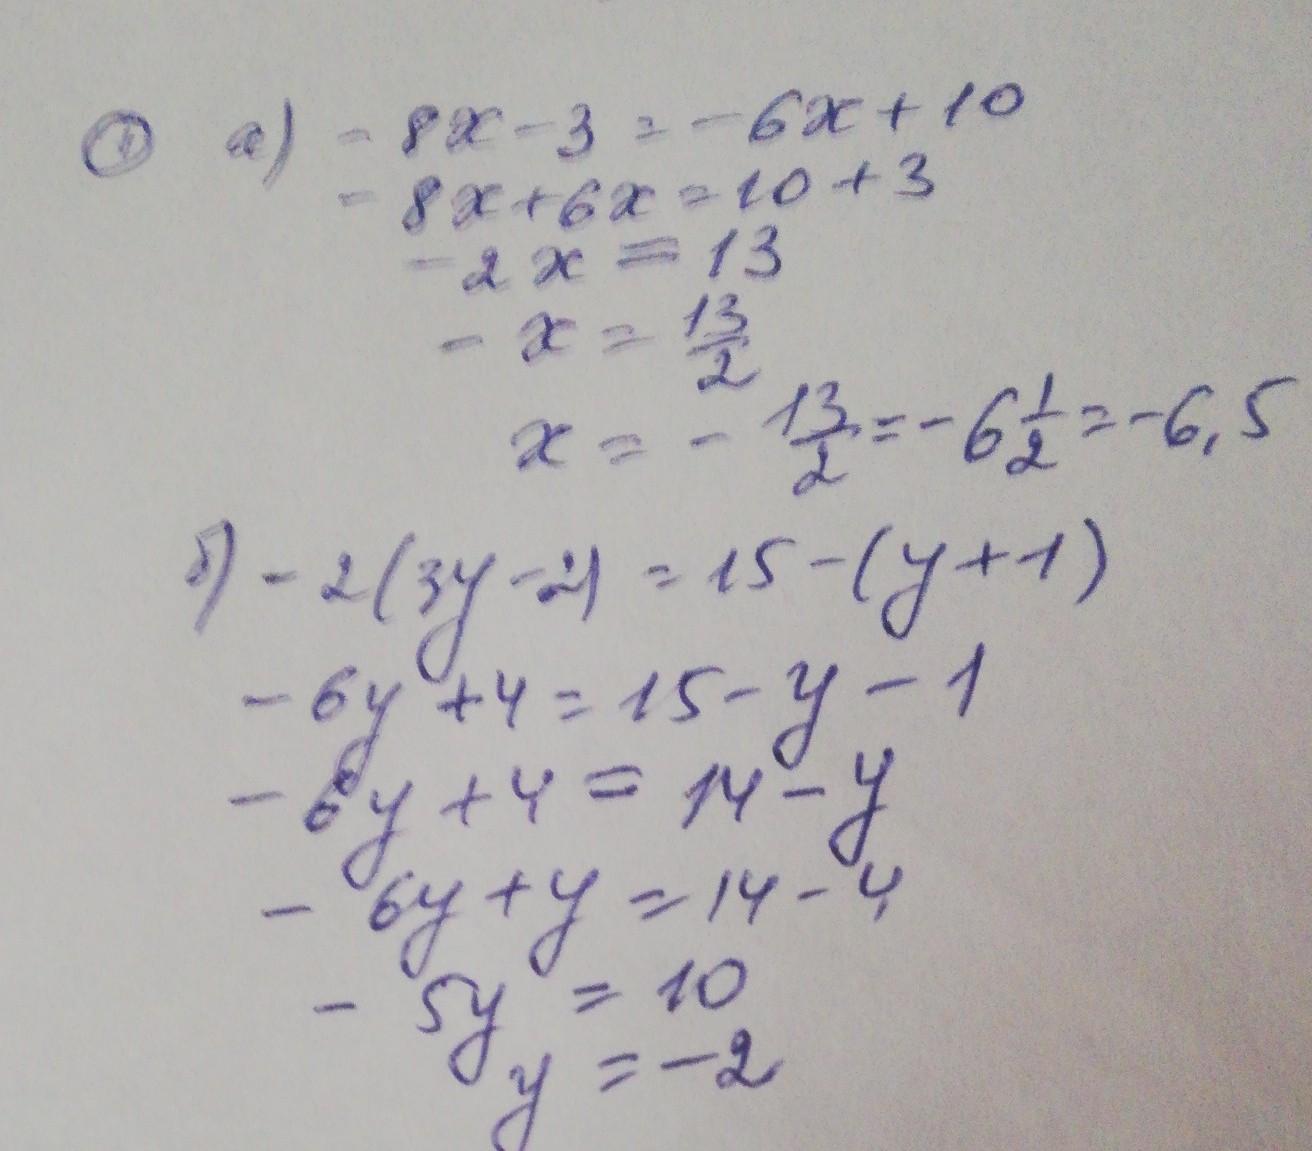 ① а) - 8x - 3 = - 6x + 10
- 8x + 6x = 10 + 3
- 2x = 13
- x = 13/2
x = - 13/2 = - 6 1/2 = - 6,5
б) - 2(3y - 2) = 15 - (y + 1)
- 6y + 4 = 15 - y - 1
- 6y + 4 = 14 - y
- 6y + y = 14 - 4
- 5y = 10
y = - 2